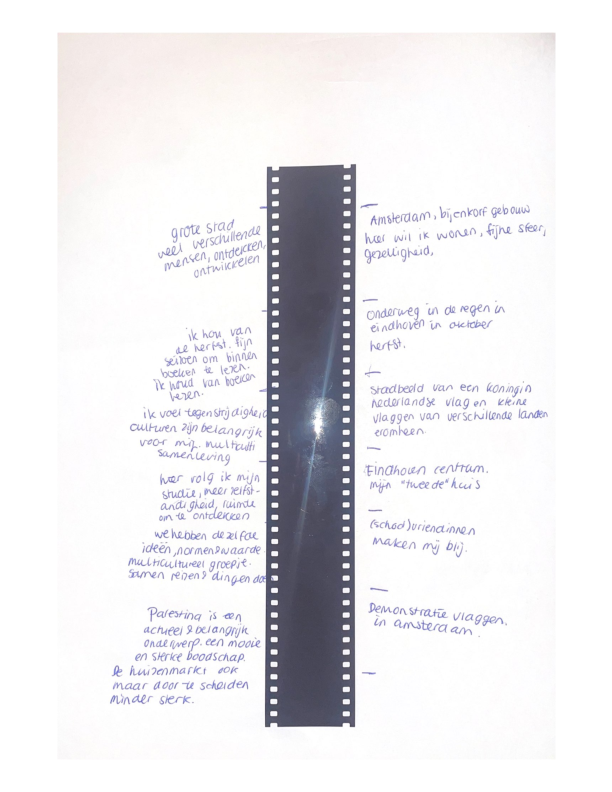 grote stad
veel verschillende
mensen, ontdekken,
ontwikkelen
ik hou van
de herfst. fijn
seizoen om binnen
boeken te lezen.
ik houd van boeken
lezen.
ik voel tegenstrijdigheid
culturen zijn belangrijk
voor mij. multiculti
samenleving
hier volg ik mijn
studie, meer zelfst-
andigheid, ruimte
om te ontdekken
we hebben dezelfde
ideën, normen & waarde.
multicultureel groepje.
samen reizen & dingen doen
Palestina is een
actueel & belangrijk
onderwerp. een mooie
en sterke boodschap.
de huizenmarkt ook
maar door te scheiden
minder sterk.
Amsterdam, bijenkorf gebouw
hier wil ik wonen, fijne sfeer,
gezelligheid,
onderweg in de regen in
eindhoven in oktober
herfst.
stadbeeld van een koningin
nederlandse vlag en kleine
vlaggen van verschillende landen
eromheen.
Eindhoven centrum.
mijn "tweede" huis
(school)vriendinnen
maken mij blij.
Demonstratie vlaggen.
in amsterdam.